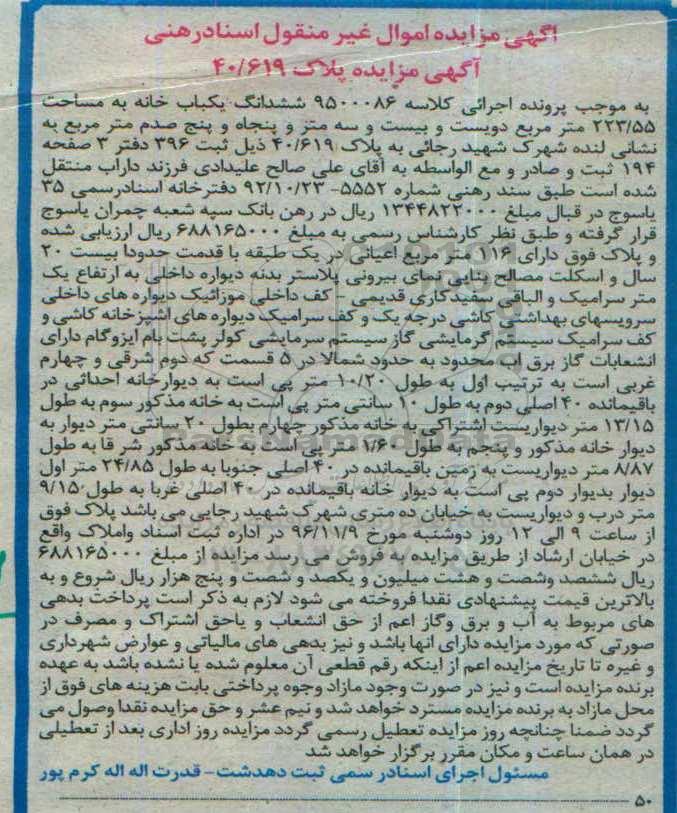 آگهی مزایده اموال غیر منقول اسناد رهنی
آگهی مزایده پلاک ۴۰/۶۱۹
به موجب پرونده اجرائی کلاسه ۹۵۰۰۰۸۶ ششدانگ یکباب خانه به مساحت
۲۲۳/۵۵ متر مربع دویست و بیست و سه متز و پنجاه و پنج صدم متر مربع به
نشانی لنده شهرک شهید رجائی به پلاک ۴۰/۶۱۹ ذیل ثبت ۳۹۶ دفتر ۳ صفحه
۱۹۴ ثبت و صادر و مع الواسطه به آقای علی صالح علیدادی فرزند داراب منتقل
شده است طبق سند رهنی شماره ۵۵۵۲- ۹۲/۱۰/۲۳ دفترخانه اسنادرسمی ۳۵
یاسوج در قبال مبلغ ۱۳۴۴۸۲۲۰۰۰ ریال در رهن بانک سپه شعبه چمران یاسوج
قرار گرفته و طبق نظر کارشناس رسمی به مبلغ ۶۸۸۱۶۵۰۰۰ ریال ارزیابی شده
و پلاک فوق دارای ۱۱۶ متر مربع اعیانی در یک طبقه با قدمت حدودا بیست ۲۰
سال و اسکلت مصالح بنایی نمای بیرونی پلاستر بدنه دیواره داخلی به ارتفاع یک
متر سرامیک و الباقی سفیدکاری قدیمی - کف داخلی موزائیک دیواره های داخلی
سرویسهای بهداشتی کاشی درجه یک و کف سرامیک دیواره های اشپزخانه کاشی و
کف سرامیک سیستم گرمایشی گاز سیستم سرمایشی کولر پشت بام ایزوگام دارای
انشعابات گاز برق اب محدود به حدود شمالا در ۵ قسمت که دوم شرقی و چهارم
غربی است به ترتیب اول به طول ۱۰/۲۰ متر پی است به دیوارخانه احداثی در
باقیمانده ۴۰ اصلی دوم به طول ۱۰ سانتی متر پی است به خانه مذکور سوم به طول
۱۳/۱۵ متر دیواریست اشتراکی به خانه مذکور چهارم بطول ۲۰ سانتی متر دیوار به
دیوار خانه مذکور و پنجم به طول ۱/۶۰ متر پی است به خانه مذکور شر قا به طول
۸/۸۷ متر دیواریست به زمین باقیمانده در ۴۰ اصلی جنوبا به طول ۲۴/۸۵ متر اول
دیوار بدیوار دوم پی است به دیوار خانه باقیمانده در ۴۰ اصلی غربا به طول ۹/۱۵
متر درب و دیواریست به خیابان ده متری شهرک شهید رجایی می باشد پلاک فوق
از ساعت ۹ الی ۱۲ روز دوشنبه مورخ ۹۶/۱۱/۹ در اداره ثبت اسناد واملاک واقع
در خیابان ارشاد از طریق مزایده به فروش می رسد مزایده از مبلغ ۶۸۸۱۶۵۰۰۰
ریال ششصد وشصت و هشت میلیون و یکصد و شصت و پنج هزار ریال شروع و به
بالاترین قیمت پیشنهادی نقدا فروخته می شود لازم به ذکر است پرداخت بدهی
های مربوط به آب و برق وگاز اعم از حق انشعاب و یاحق اشتراک و مصرف در
صورتی که مورد مزایده دارای انها باشد و نیز بدهی های مالیاتی و عوارض شهرداری
و غیره تا تاریخ مزایده اعم از اینکه رقم قطعی آن معلوم شده یا نشده باشد به عهده
برنده مزایده است و نیز در صورت وجود مازاد وجوه پرداختی بابت هزینه های فوق از
محل مازاد به برنده مزایده مسترد خواهد شد و نیم عشر و حق مزایده نقدا وصول می
گردد ضمنا چنانچه روز مزایده تعطیل رسمی گردد مزایده روز اداری بعد از تعطیلی
در همان ساعت و مکان مقرر برگزار خواهد شد
مسئول اجرای اسناد رسمی ثبت دهدشت- قدرت اله اله کرم پور
۵۰